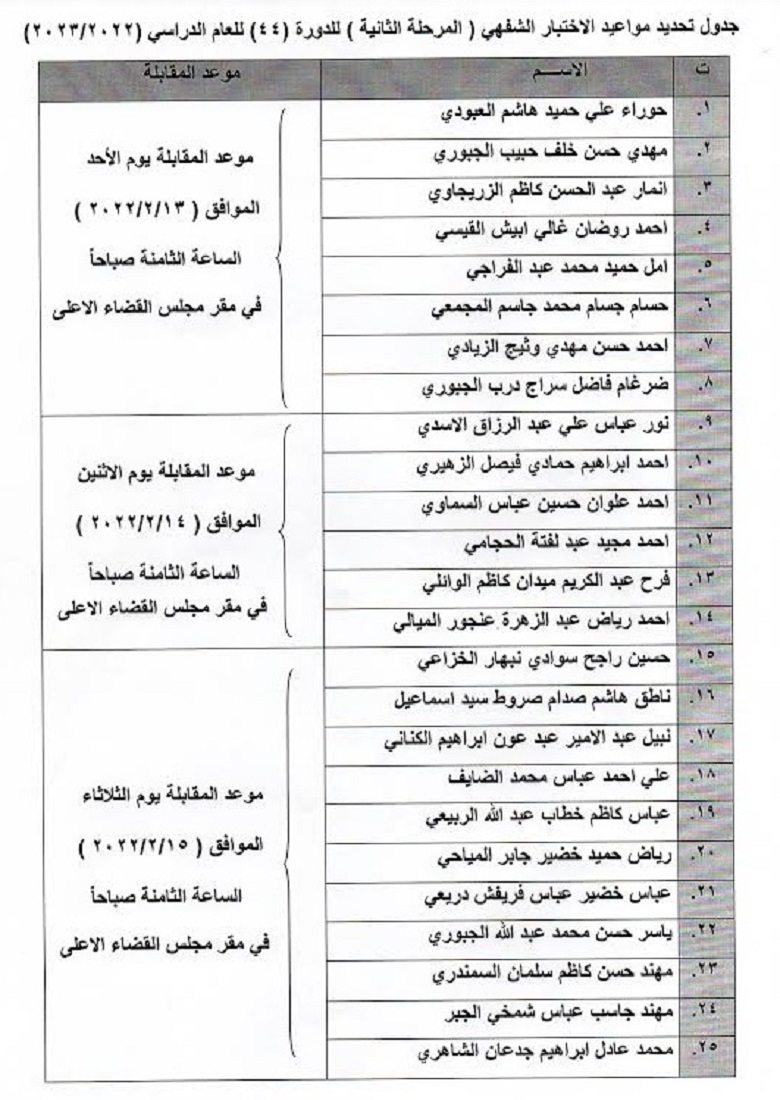 جدول تحديد مواعيد الاختبار الشفهي ( المرحلة الثانية ) للدورة (٤٤) للعام الدراسي (٢٠٢٣/٢٠٢٢)
ت الاســم موعد المقابلة
١. حوراء علي حميد هاشم العبودي
٢. مهدي حسن خلف حبيب الجبوري
٣. انمار عبد الحسن كاظم الزريجاوي
٤. احمد روضان غالي ابيش القيسي
٥. امل حميد محمد عبد الفراجي
٦. حسام جسام محمد جاسم المجمعي
٧. احمد حسن مهدي وثيج الزيادي
٨. ضرغام فاضل سراج درب الجبوري
موعد المقابلة يوم الأحد
الموافق ( ٢٠٢٢/٢/١٣ )
الساعة الثامنة صباحاً
في مقر مجلس القضاء الاعلى
٩. نور عباس علي عبد الرزاق الاسدي
١٠. احمد ابراهيم حمادي فيصل الزهيري
١١. احمد علوان حسين عباس السماوي
١٢. احمد مجيد عبد لفتة الحجامي
١٣. فرح عبد الكريم ميدان كاظم الوائلي
١٤. احمد رياض عبد الزهرة عنجور الميالي
موعد المقابلة يوم الاثنين
الموافق ( ٢٠٢٢/٢/١٤ )
الساعة الثامنة صباحاً
في مقر مجلس القضاء الاعلى
١٥. حسين راجح سوادي نبهار الخزاعي
١٦. ناطق هاشم صدام صروط سيد اسماعيل
١٧. نبيل عبد الامير عبد عون ابراهيم الكناني
١٨. علي احمد عباس محمد الضايف
١٩. عباس كاظم خطاب عبد الله الربيعي
٢٠. رياض حميد خضير جابر المياحي
٢١. عباس خضير عباس فريفش دريعي
٢٢. ياسر حسن محمد عبد الله الجبوري
٢٣. مهند حسن كاظم سلمان السمندري
٢٤. مهند جاسب عباس شمخي الجبر
٢٥. محمد عادل ابراهيم جدعان الشاهري
موعد المقابلة يوم الثلاثاء
الموافق ( ٢٠٢٢/٢/١٥ )
الساعة الثامنة صباحاً
في مقر مجلس القضاء الاعلى